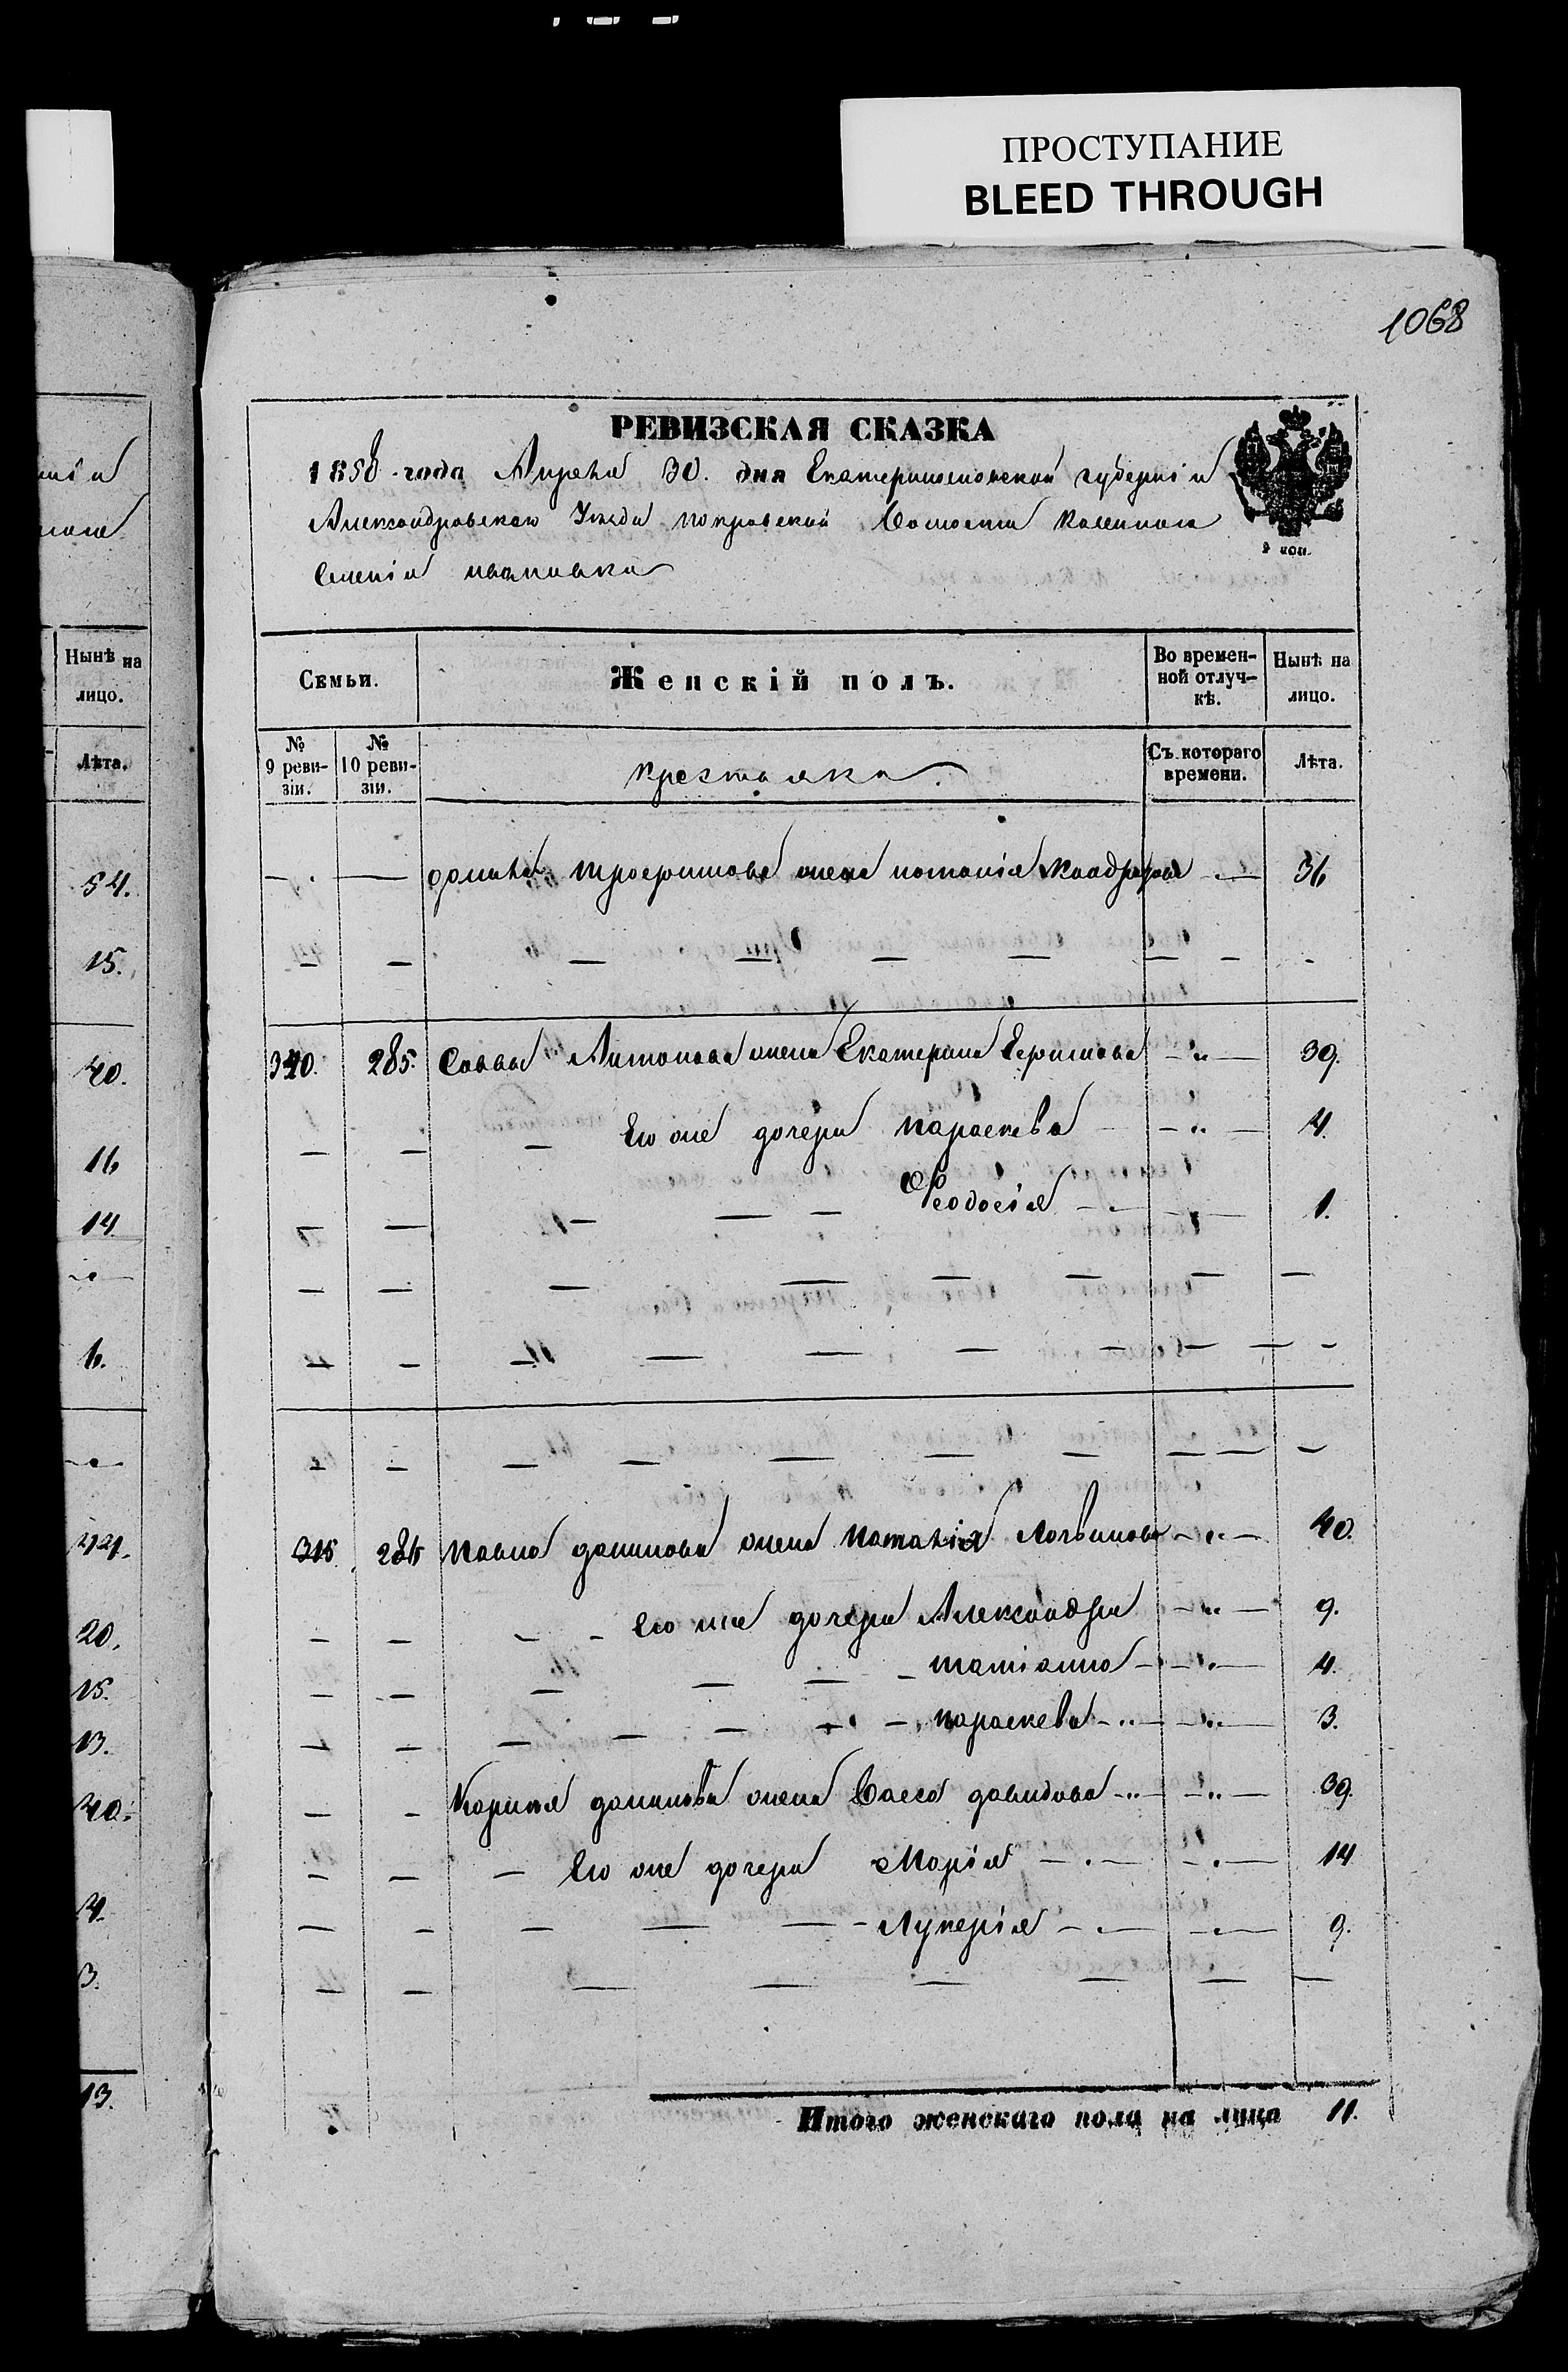 ПРОСТУПАНИЕ
BLEED THROUGH
1068
РЕВИЗСКАЯ СКАЗКА
1858 года Апреля 30. дня Екатеринославской губерніи
Александровскаго Уезда покровской Волости Казеннаго
Селенія ивановки
Семьи. Женскій полъ. Во временной отлучкѣ. Нынѣ на лицо.
№ 9 ревизіи. № 10 ревизіи. Съ котораго времени. Лѣта.
трофимова жена 36
340. 285. Саввы Антонова жена Екатерина Ефимова 39.
Его же дочери параскева 4.
Феодосія 1.
315. 286 павла данилова жена наталія Логвинова 40.
Его же дочери Александра 9.
татіанна 4.
параскева 3.
данилова жена Васса давидова 39.
Его же дочери Марія 14
Лукерія 9.
Итого женскаго пола на лицо 11.
Нынѣ на лицо.
Лѣта.
54.
15.
40.
16
14.
6.
20.
15.
13.
40.
4.
3.
13.